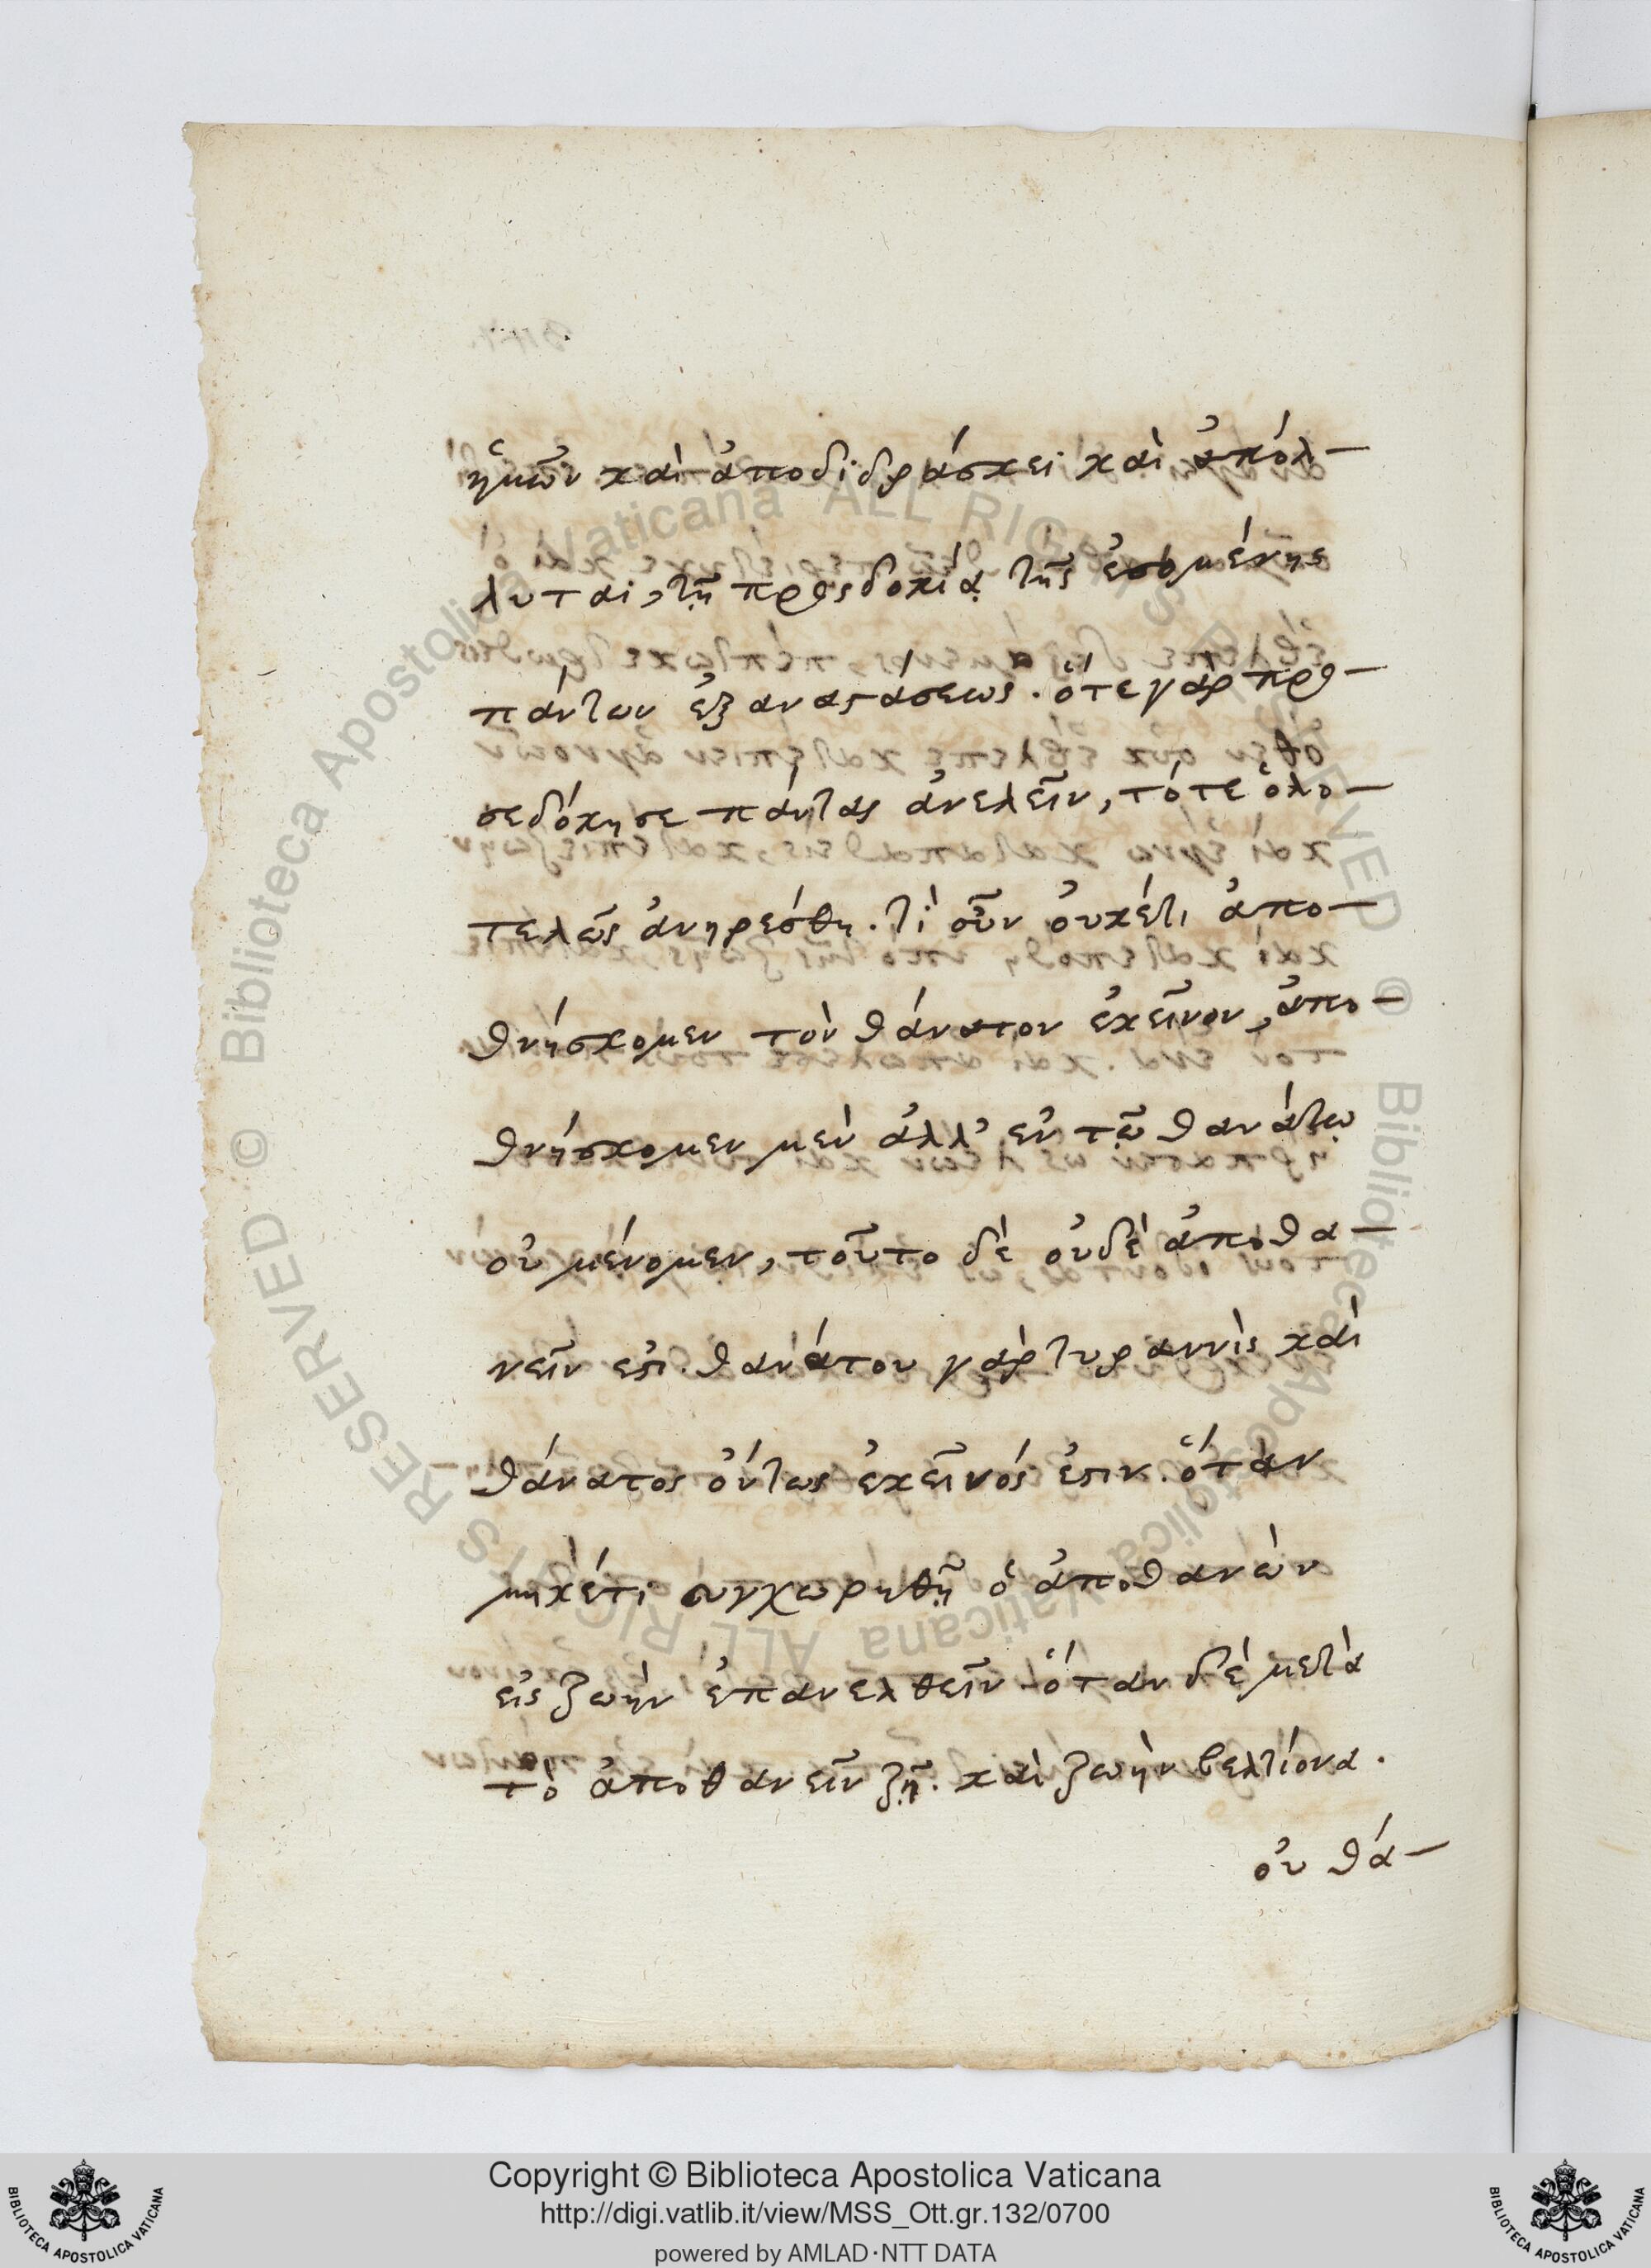 ἡμῶν καὶ ἀποδιδράσκει καὶ ἀπόλ-
λυται, τῇ προσδοκίᾳ τῆς ἐσομένης
πάντων ἐξαναστάσεως. ὅτε γὰρ προ-
σεδόκησε πάντας ἀνελεῖν, τότε ὁλο-
τελῶς ἀνηρέσθη. τί οὖν οὐκέτι ἀπο-
θνήσκομεν τὸν θάνατον ἐκεῖνον, ἀπο-
θνήσκομεν μὲν ἀλλ' ἐν τῷ θανάτῳ
οὐ μένομεν, τοῦτο δὲ οὐδὲ ἀποθα-
νεῖν ἐστι. θανάτου γὰρ τυραννὶς καὶ
θάνατος ὄντως ἐκεῖνός ἐστιν. ὅταν
μηκέτι συγχωρηθῇ ὁ ἀποθανὼν
εἰς ζωὴν ἐπανελθεῖν. ὅταν δὲ μετὰ
τὸ ἀποθανεῖν ζῇ. καὶ ζωὴν βελτίονα.
οὐ θά-
Copyright © Biblioteca Apostolica Vaticana
http://digi.vatlib.it/view/MSS_Ott.gr.132/0700
powered by AMLAD·NTT DATA
BIBLIOTECA APOSTOLICA VATICANA
BIBLIOTECA APOSTOLICA VATICANA
© Biblioteca Apostolica Vaticana ALL RIGHTS RESERVED © Biblioteca Apostolica Vaticana ALL RIGHTS RESERVED